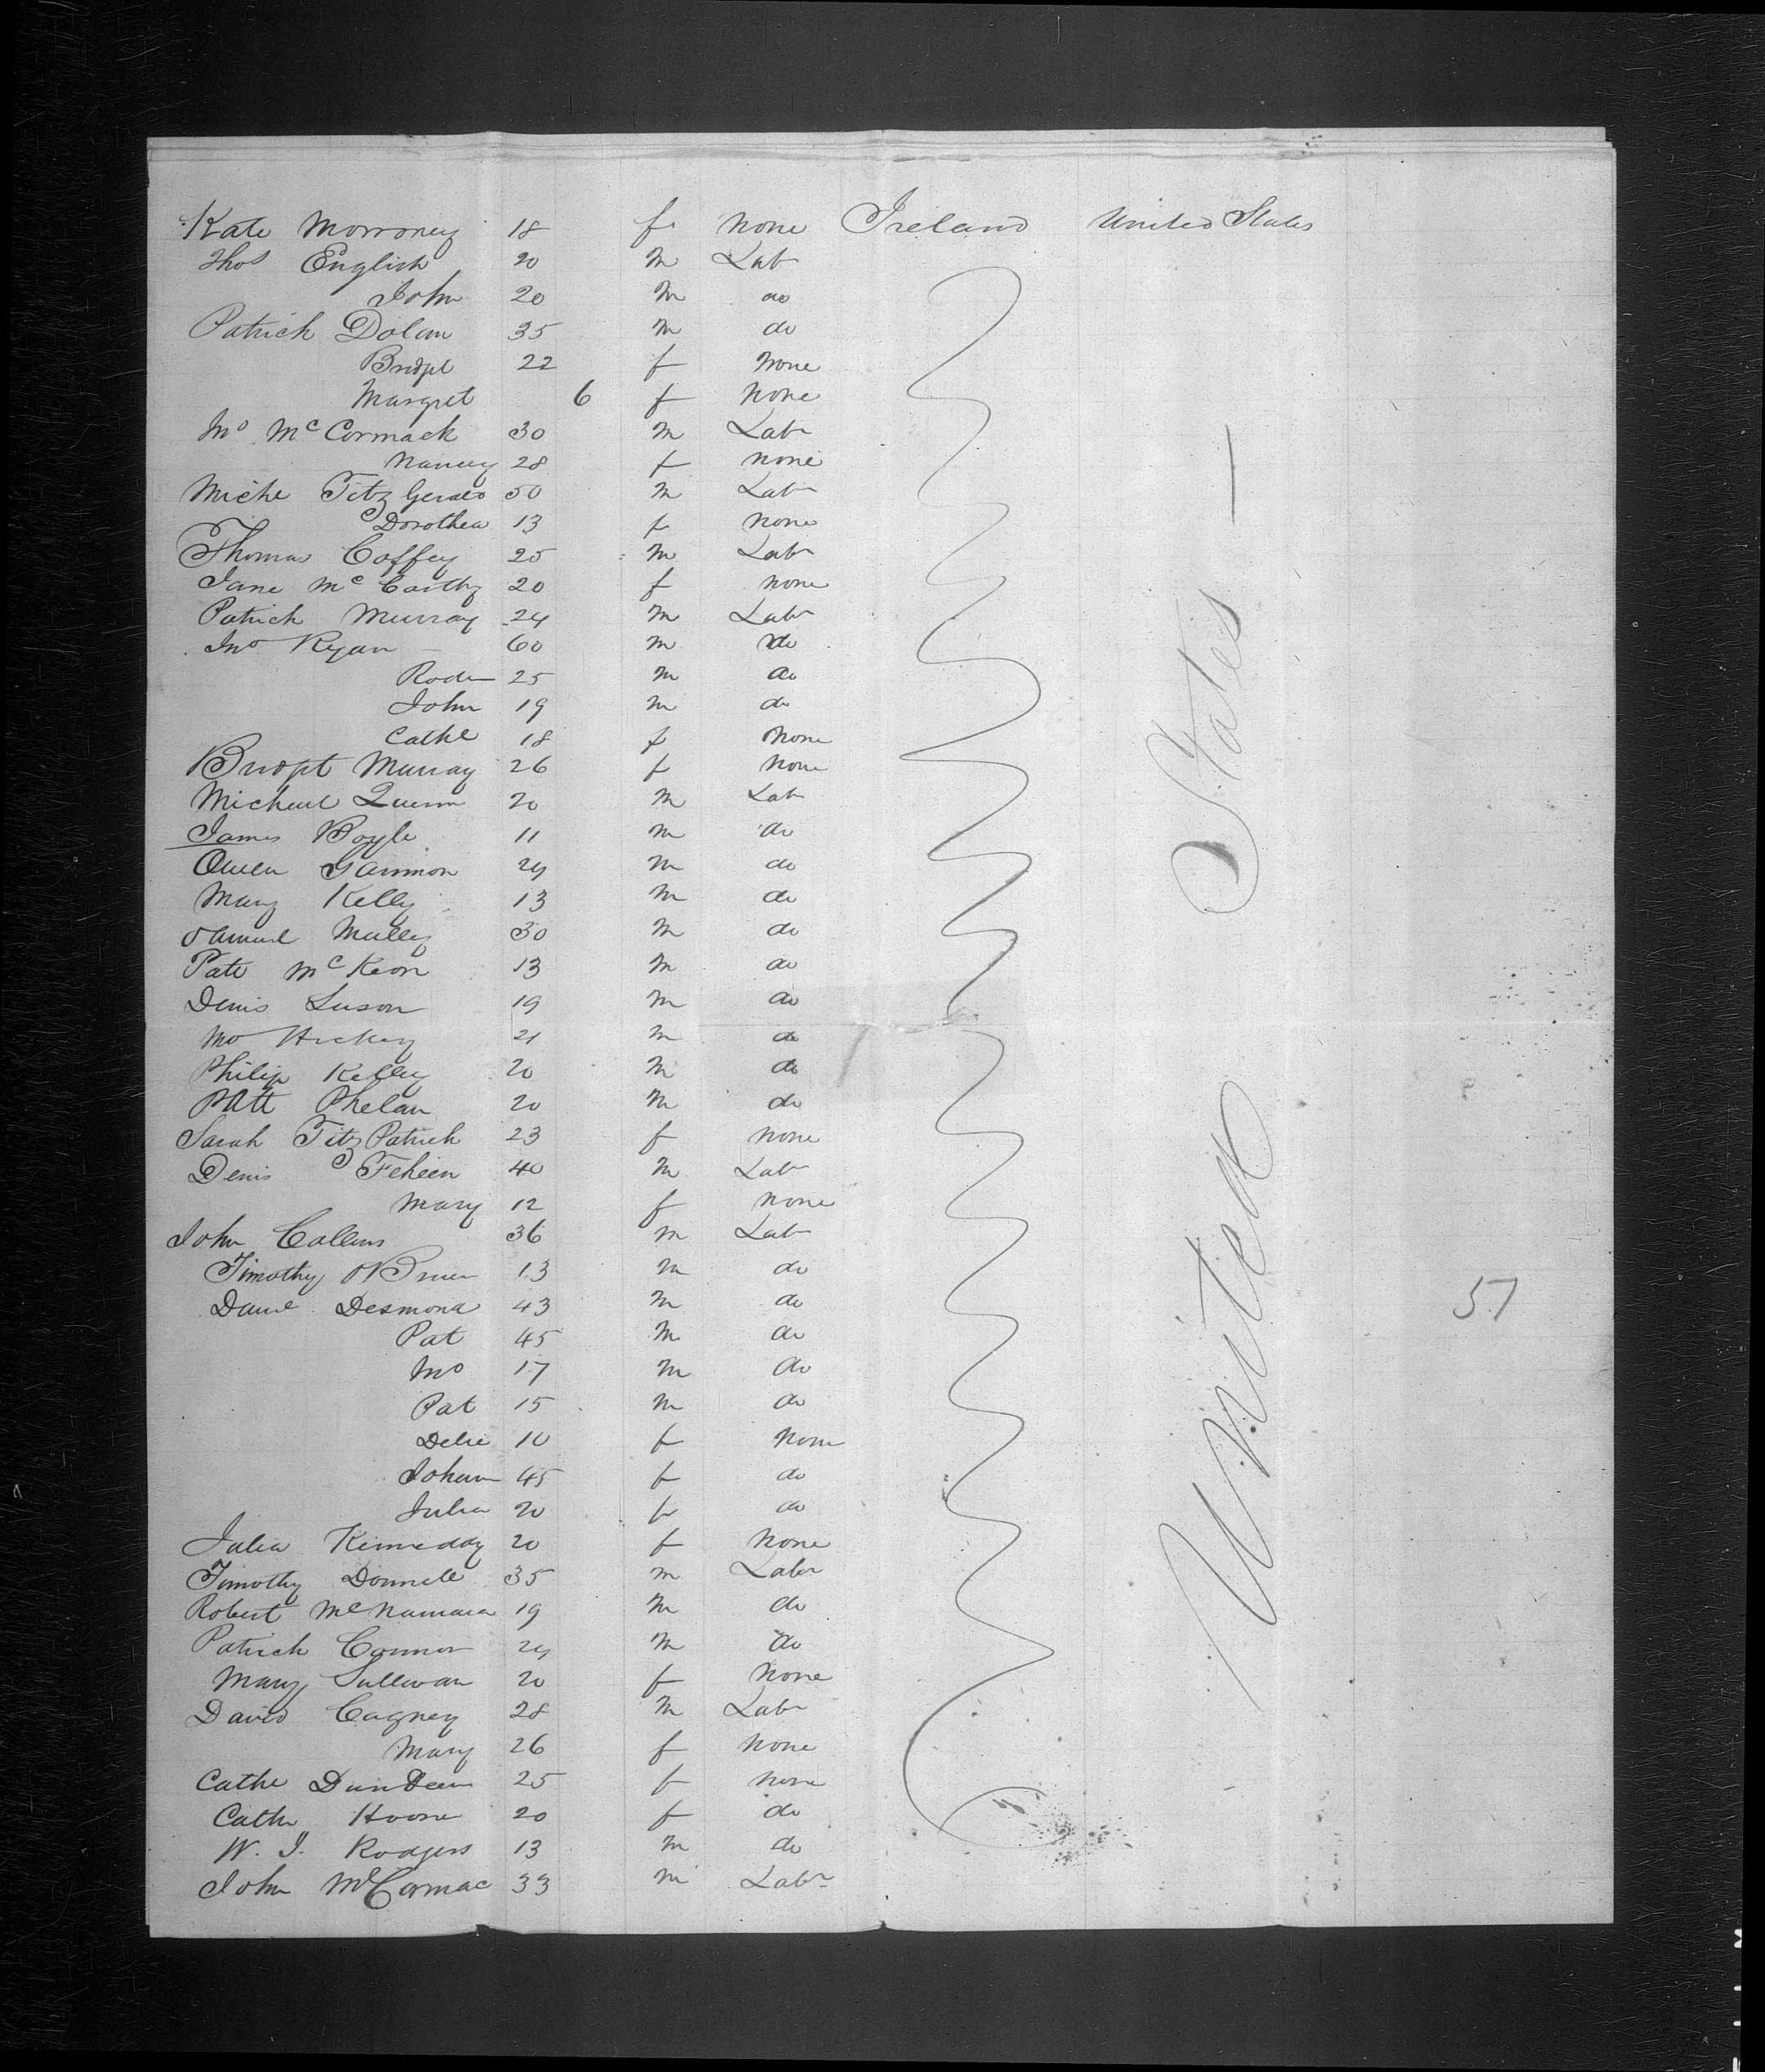 Kate Morroney 18 f. None Ireland United States
Thos English 20 m Lab
John 20 m do
Patrick Dolan 35 m do
Bridgt 22 f None
Margret 6 f None
Mo McCormack 30 m Labr
Nancy 28 f None
Miche Fitz Gerald 50 m Labr
Dorothea 13 f None
Thomas Coffey 25 m Labr
Jane McCarthy 20 f None
Patrick Murray 24 m Labr
Jno Ryan 60 m do
25 m do
John 19 m do
Cathe 18 f None
Bridgt Murray 26 f None
Michael Quinn 20 m Lab
James Boyle 11 m do
Owen Gannon 24 m do
Mary Kelly 13 m do
Samuel Mulley 30 m do
Patk McKeon 13 m do
Denis 19 m do
Mo Hickey 21 m do
Philip Kelley 20 m do
Patt Phelan 20 m do
Sarah Fitz Patrick 23 f None
Denis Feheen 40 m Labr
Mary 12 f None
John Collins 36 m Labr
Timothy O'Brien 13 m do
Danl Desmond 43 m do
Pat 45 m do
Mo 17 m do
Pat 15 m do
10 f None
Johan 45 f do
Julia 20 f do
Julia Kinneddy 20 f None
Timothy Donnell 35 m Labr
Robert McNamara 19 m do
Patrick Connor 24 m do
Mary Sullivan 20 f None
David Cagney 28 m Labr
Mary 26 f None
Cathe 25 f None
Cathe 20 f do
W. J. Rodgers 13 m do
John McCormac 33 m Labr
United States —
57